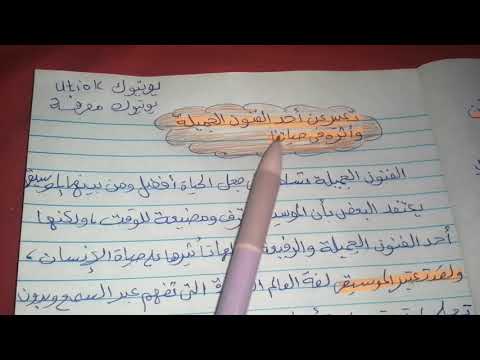 يوتيوك utiok
يوتيوك معرفة
تعبير عن أحد الفنون الجميلة
وأثره في حياتنا
الفنون الجميلة جعل الحياة أفضل ومن بينها الموسيقى
يعتقد البعض بأن الموسيقى ومضيعة للوقت، ولكنها
أحد الفنون الجميلة والرفيعة تأثيرها على حياة الإنسان،
ولقد تعتبر الموسيقى لغة العالم التي تفهم عبر السمع وبدون